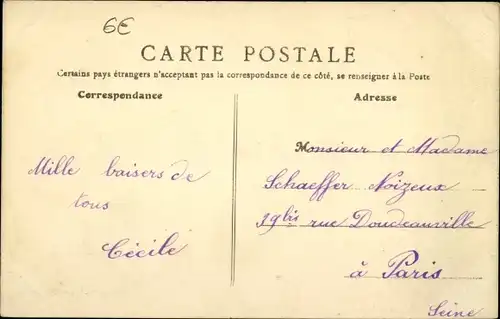 6€
CARTE POSTALE
Certains pays étrangers n'acceptant pas la correspondance de ce côté, se renseigner à la Poste
Correspondance
Adresse
Mille baisers de
tous
Cécile
Monsieur et Madame
Schaeffer Noizeux
19bis rue Doudeauville
à Paris
Seine